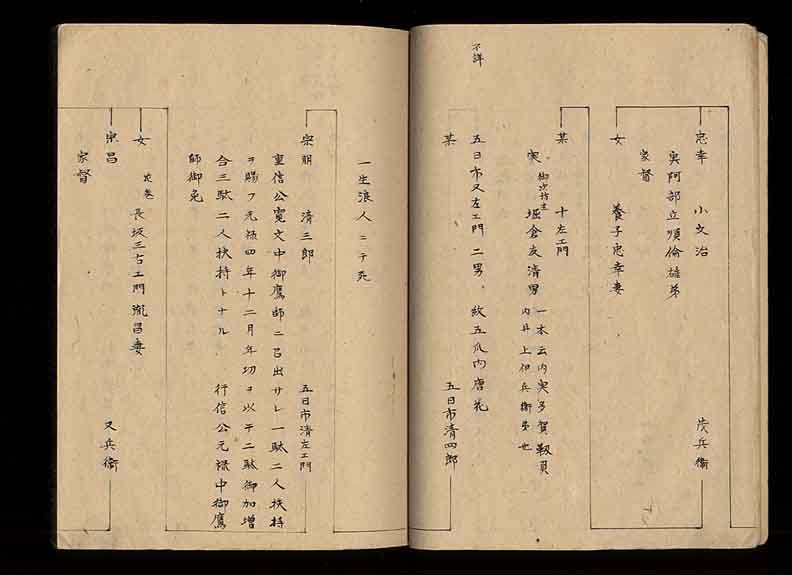 忠幸 小文治 茂兵衞
実阿部立順倫雄弟
家督
女 養子忠幸妻
某 十左エ門
実 御次坊主 堀倉友清男 一本云内実多賀靱負
内井上伊兵衞弟也
五日市又左エ門二男、紋五瓜内唐花
不詳
某 五日市清四郎
一生浪人ニテ死
宗明 清三郎 五日市清左エ門
重信公寛文中御鷹師ニ召出サレ一駄二人扶持
ヲ賜フ元禄四年十二月年切ヲ以テ二駄御加増
合三駄二人扶持トナル 行信公元禄中御鷹
師御免
女 長坂三右エ門 昌妻
宗昌 又兵衞
家督